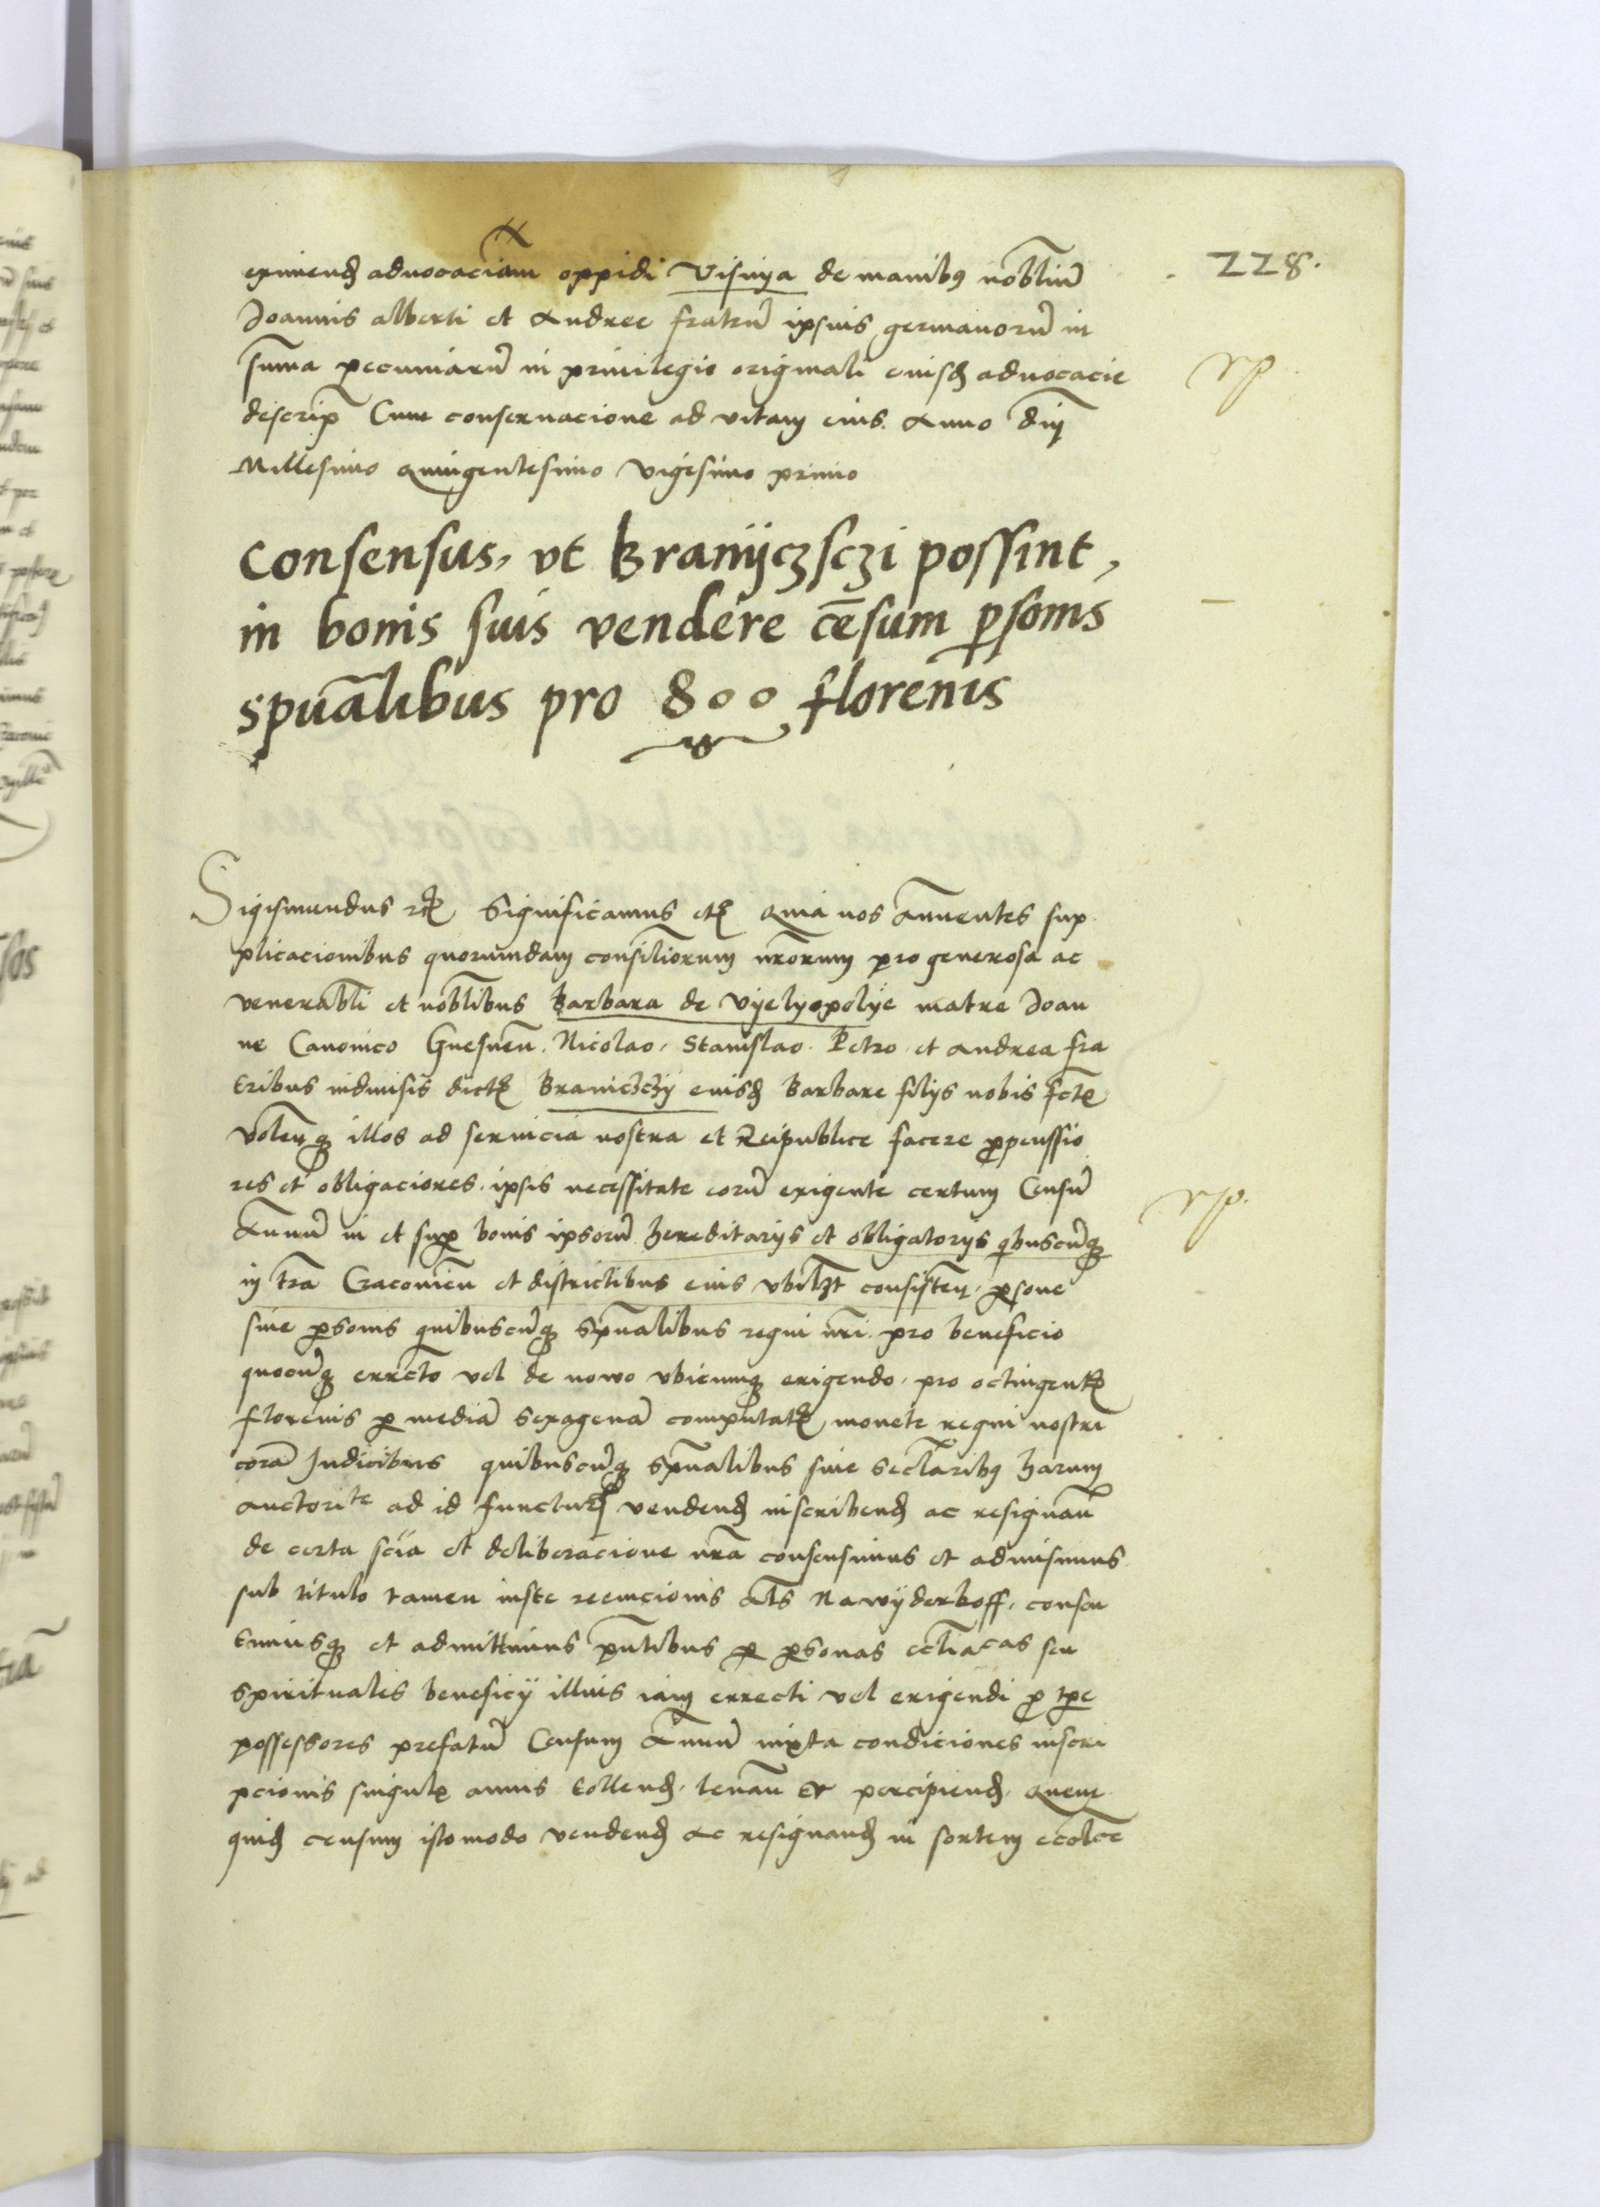 228.
eximend advocaciam oppidi Visniya de manibꝯ nobiliũ
Joannis alberti et Andree fratrũ ipsius germanorũ in
sum̃a pecuniarũ in privilegio originali eiusd advocacie
descrip̃ Cum conservacione ad vitam eius. Anno dñj
Millesimo Quingentesimo vigesimo primo
vp
Consensus, vt Branyczsczi possint,
in bonis suis vendere cēsum ꝑsonis
spũalibus pro 800 florenis
Sigismundus etc̃ Significamus etc̃ Quia nos Annuentes sup
plicacionibus quorumdam consiliorum nrõrum pro generosa ac
venerabli et noblibus Barbara de Vyelyopolye matre Joan
ne Canonico Gnesneñ. Nicolao, Stanislao. Petro. et Andrea fra
tribus indivisis dict̃ Braniczczy eiusd Barbare filys nobis fct̃
volenꝗ illos ad servicia nostra et Reipublice facere ꝓpenssio
res et obligaciores. ipsis necessitate eorũ exigente certum Censũ
Annuũ in et suꝑ bonis ipsorũ hereditarys et obligatorys qbuscũꝗ
in trã Cracovieñ et districtibus eius vbilꝫt consisteñ. ꝑsone
sive ꝑsonis quibuscũꝗ spũalibus regni nrĩ. pro beneficio
quocũꝗ errecto vel de nowo vbicumꝗ erigendo. pro octingent̃
florenis ꝑ mediã sexagenã computat̃ monete regni nostri
corã Judicibus quibuscũꝗ spũalibus sive seclãribꝯ harum
auctorite ad id functur̃ vendend inscribend ac resignañ
de certa scĩa et deliberacione nrã consensimus et admisimus
sub titulo tamen iuste reempcionis als̃ Nawyderkoff. consen
timusꝗ et admittimus pñtibus ꝑ ꝑsonas eccliãcas seu
spiritualis beneficy illius iam errecti vel erigendi ꝓ tp̃e
possessores prefatũ Censum Annuũ iuxta condiciones inscri
pcionis singulis annis tollend. levañ Et percipiend. Quem
quid censum isto modo vendend ac resignand in sortem
vp.